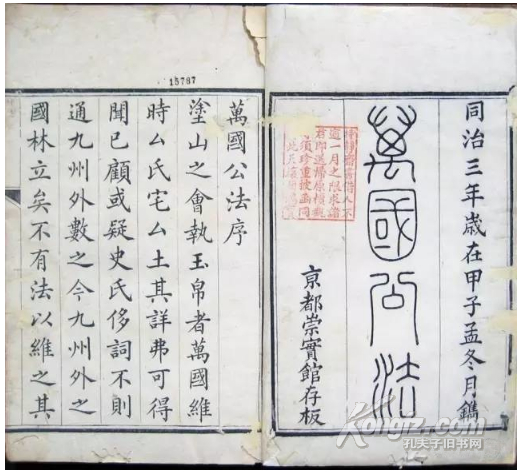 同治三年歲在甲子孟冬月鐫
萬國公法
亰都崇實館存板
逾一月之限求諸
15767
萬國公法序
塗山之會執玉帛者萬國維
時厶氏宅厶土其詳弗可得
聞已顧或疑史氏侈詞不則
通九州外數之今九州外之
國林立矣不有法以維之其
Kongfz.com
孔夫子旧书网